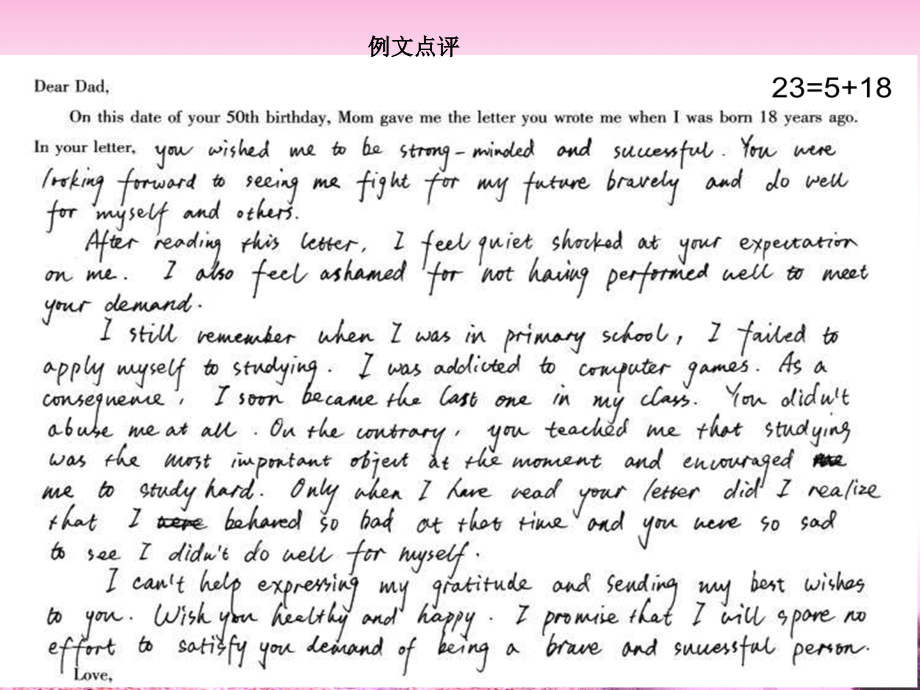 例文点评
23=5+18
Dear Dad,
On this date of your 50th birthday, Mom gave me the letter you wrote me when I was born 18 years ago.
In your letter, you wished me to be strong-minded and successful. You were
looking forward to seeing me fight for my future bravely and do well
for myself and others.
After reading this letter, I feel quiet shocked at your expectation
on me. I also feel ashamed for not having performed well to meet
your demand.
I still remember when I was in primary school, I failed to
apply myself to studying. I was addicted to computer games. As a
consequence, I soon became the last one in my class. You didn't
abuse me at all. On the contrary, you teached me that studying
was the most important object at the moment and encouraged me
me to study hard. Only when I have read your letter did I realize
that I were behaved so bad at that time and you were so sad
to see I didn't do well for myself.
I can't help expressing my gratitude and sending my best wishes
to you. Wish you healthy and happy. I promise that I will spare no
effort to satisfy you demand of being a brave and successful person.
Love,